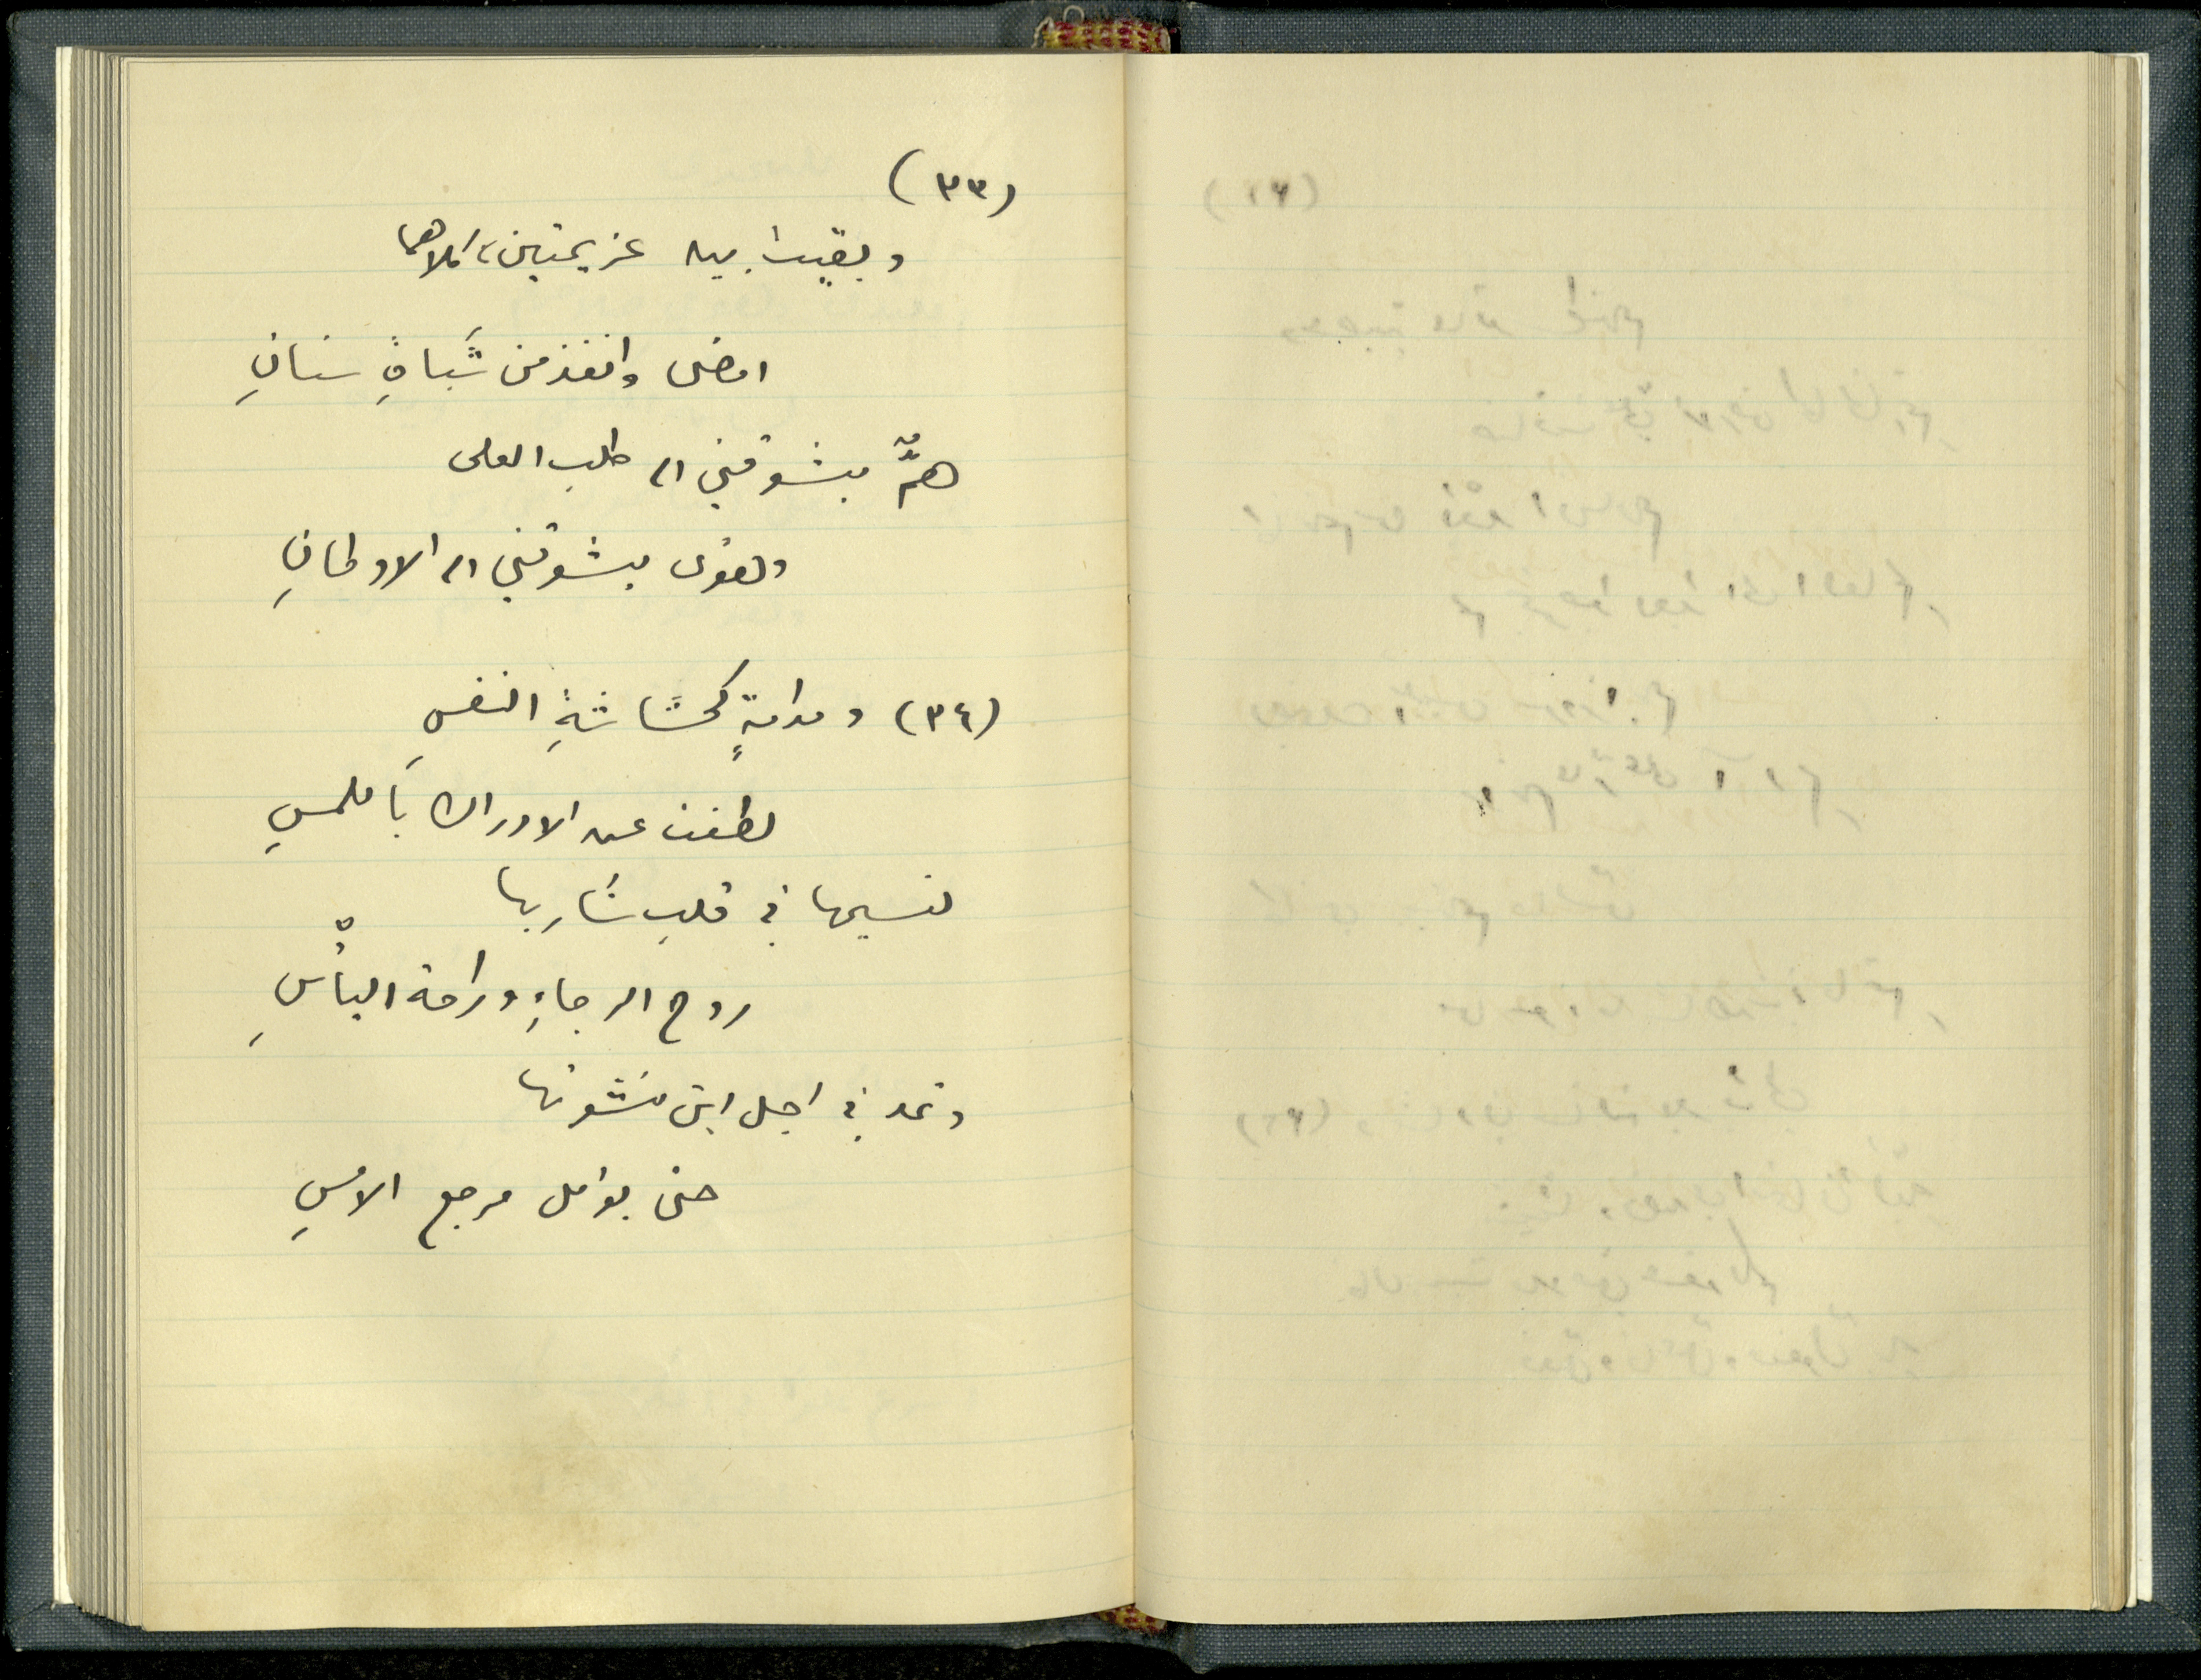 (٣٣)
وبقيت بين عزيمتين، كلاهما
امضى وانفذ من شَباةِ سنانِ
همٌّ يشوقني الى طلب العلى
وهوى يشوقني الى الاوطانِ
(٣٤) ومدامةٍ كحُشَاشَةِ النفسِ
لطفت عن الادراك باللمسِ
لنسيمها في قلبِ شَاربها
روح الرجاءِ وراحة اليأسِ
وتمد في اجل ابن نشوتها
حتى يؤمل مرجع الامسِ